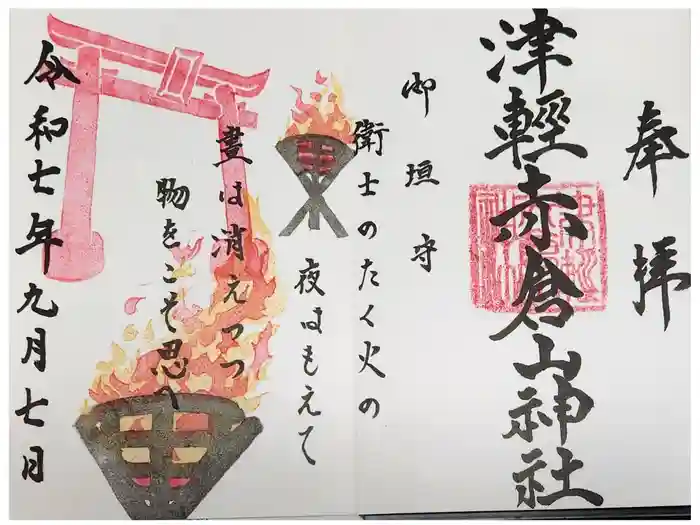 奉拝
津輕赤倉山神社
御垣守
衛士のたく火の
夜はもえて
晝は消えつつ
物をこそ思へ
令和七年九月七日